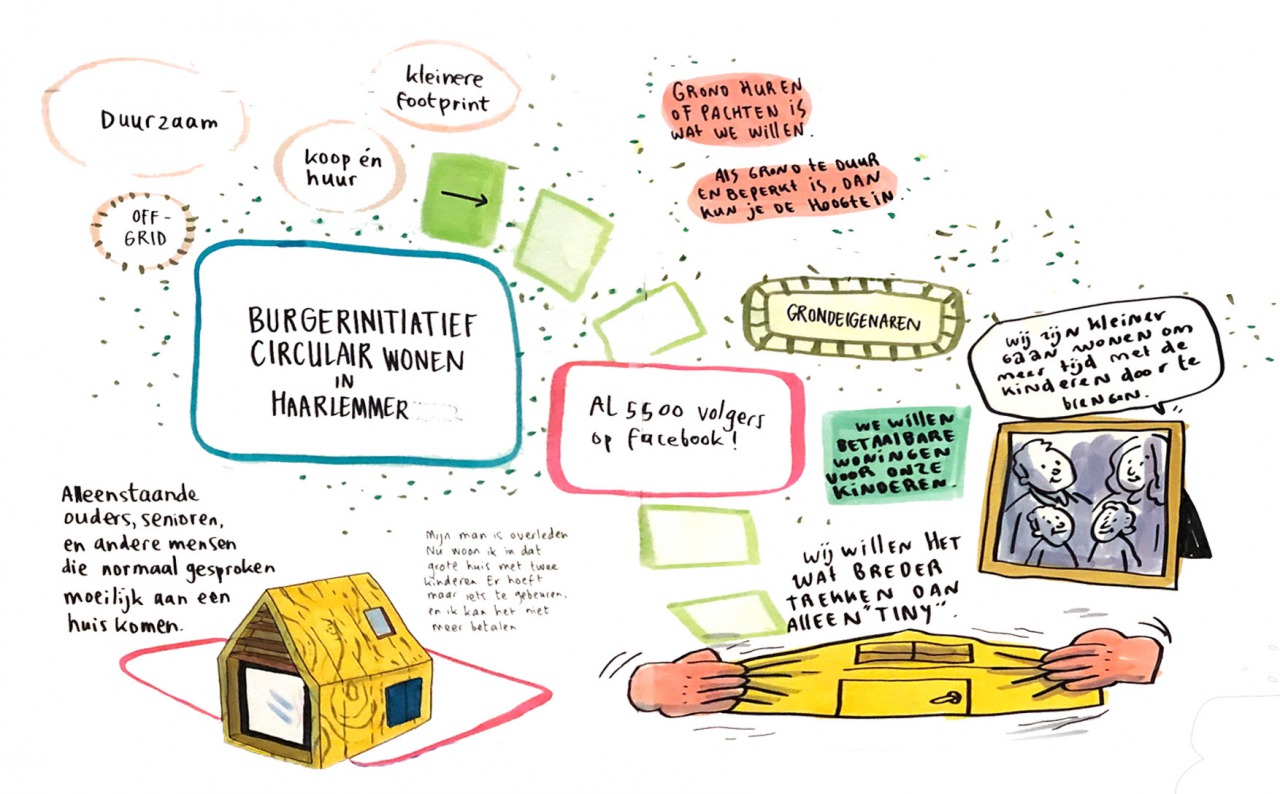 Duurzaam
kleinere
footprint
koop én
huur
OFF-
GRID
GROND HUREN
OF PACHTEN IS
WAT WE WILLEN.
ALS GROND TE DUUR
EN BEPERKT IS, DAN
KUN JE DE HOOGTE IN
BURGERINITIATIEF
CIRCULAIR WONEN
IN
HAARLEMMER
GRONDEIGENAREN
wij zijn kleiner
gaan wonen om
meer tijd met de
kinderen door te
brengen.
AL 5500 volgers
op facebook!
WE WILLEN
BETAALBARE
WONINGEN
VOOR ONZE
KINDEREN.
Alleenstaande
ouders, senioren,
en andere mensen
die normaal gesproken
moeilijk aan een
huis komen.
Mijn man is overleden
Nu woon ik in dat
grote huis met twee
kinderen. Er hoeft
maar iets te gebeuren,
en ik kan het niet
meer betalen
wij willen HET
WAT BREDER
TREKKEN DAN
ALLEEN "TINY".